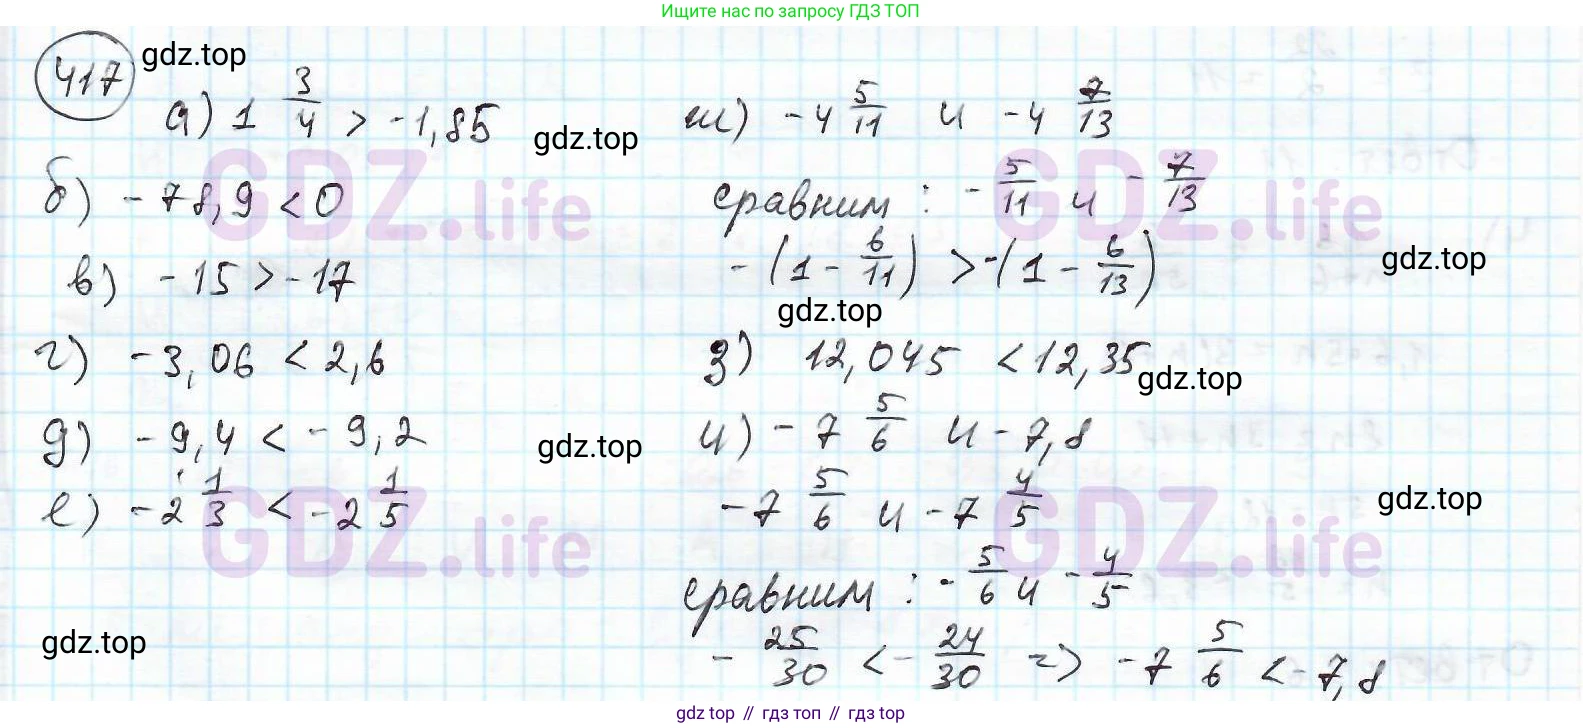 Ищите нас по запросу ГДЗ ТОП
417
gdz.top
а) 1 3/4 > -1,85
gdz.top
б) -78,9 < 0
в) -15 > -17
г) -3,06 < 2,6
д) -9,4 < -9,2
gdz.top
е) -2 1/3 < -2 1/5
gdz.top
ж) -4 5/11 и -4 7/13
сравним: -5/11 и -7/13
-(1 - 6/11) > -(1 - 6/13)
gdz.top
gdz.top
з) 12,045 < 12,35
gdz.top
и) -7 5/6 и -7,8
-7 5/6 и -7 4/5
gdz.top
сравним: -5/6 и -4/5
-25/30 < -24/30 => -7 5/6 < -7,8
GDZ.life
GDZ.life
GDZ.life
GDZ.life
gdz.top // гдз топ // gdz.top